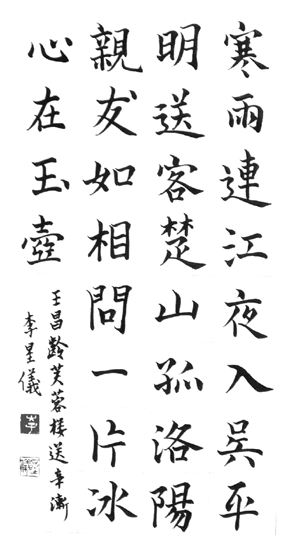 寒雨連江夜入吳平
明送客楚山孤洛陽
親友如相問一片冰
心在玉壺
王昌齡芙蓉樓送辛漸
李星儀
李